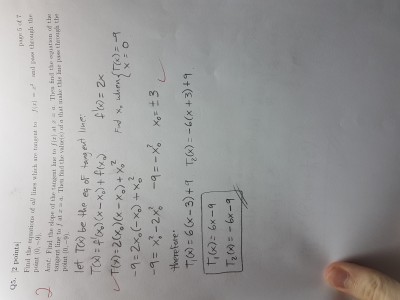 page 3 of 7
Q5. [2 points]
Find the equations of all lines which are tangent to f(x) = x² and pass through the
point (0, −9).
hint: Find the slope of the tangent line to f(x) at x = a. Then find the equation of the
tangent line to f at x = a. Then find the value(s) of a that make this line pass through the
point (0, −9).
2
let T(x) be the eq of tangent line: f'(x) = 2x
T(x) = f'(x₀)(x − x₀) + f(x₀)
T(x) = 2(x₀)(x − x₀) + x₀² Find x₀ when { T(x) = −9
x = 0
−9 = 2x₀(−x₀) + x₀²
−9 = x₀² − 2x₀² −9 = −x₀² x₀ = ±3
therefore:
T₁(x) = 6(x − 3) + 9 T₂(x) = −6(x + 3) + 9
T₁(x) = 6x − 9
T₂(x) = −6x − 9